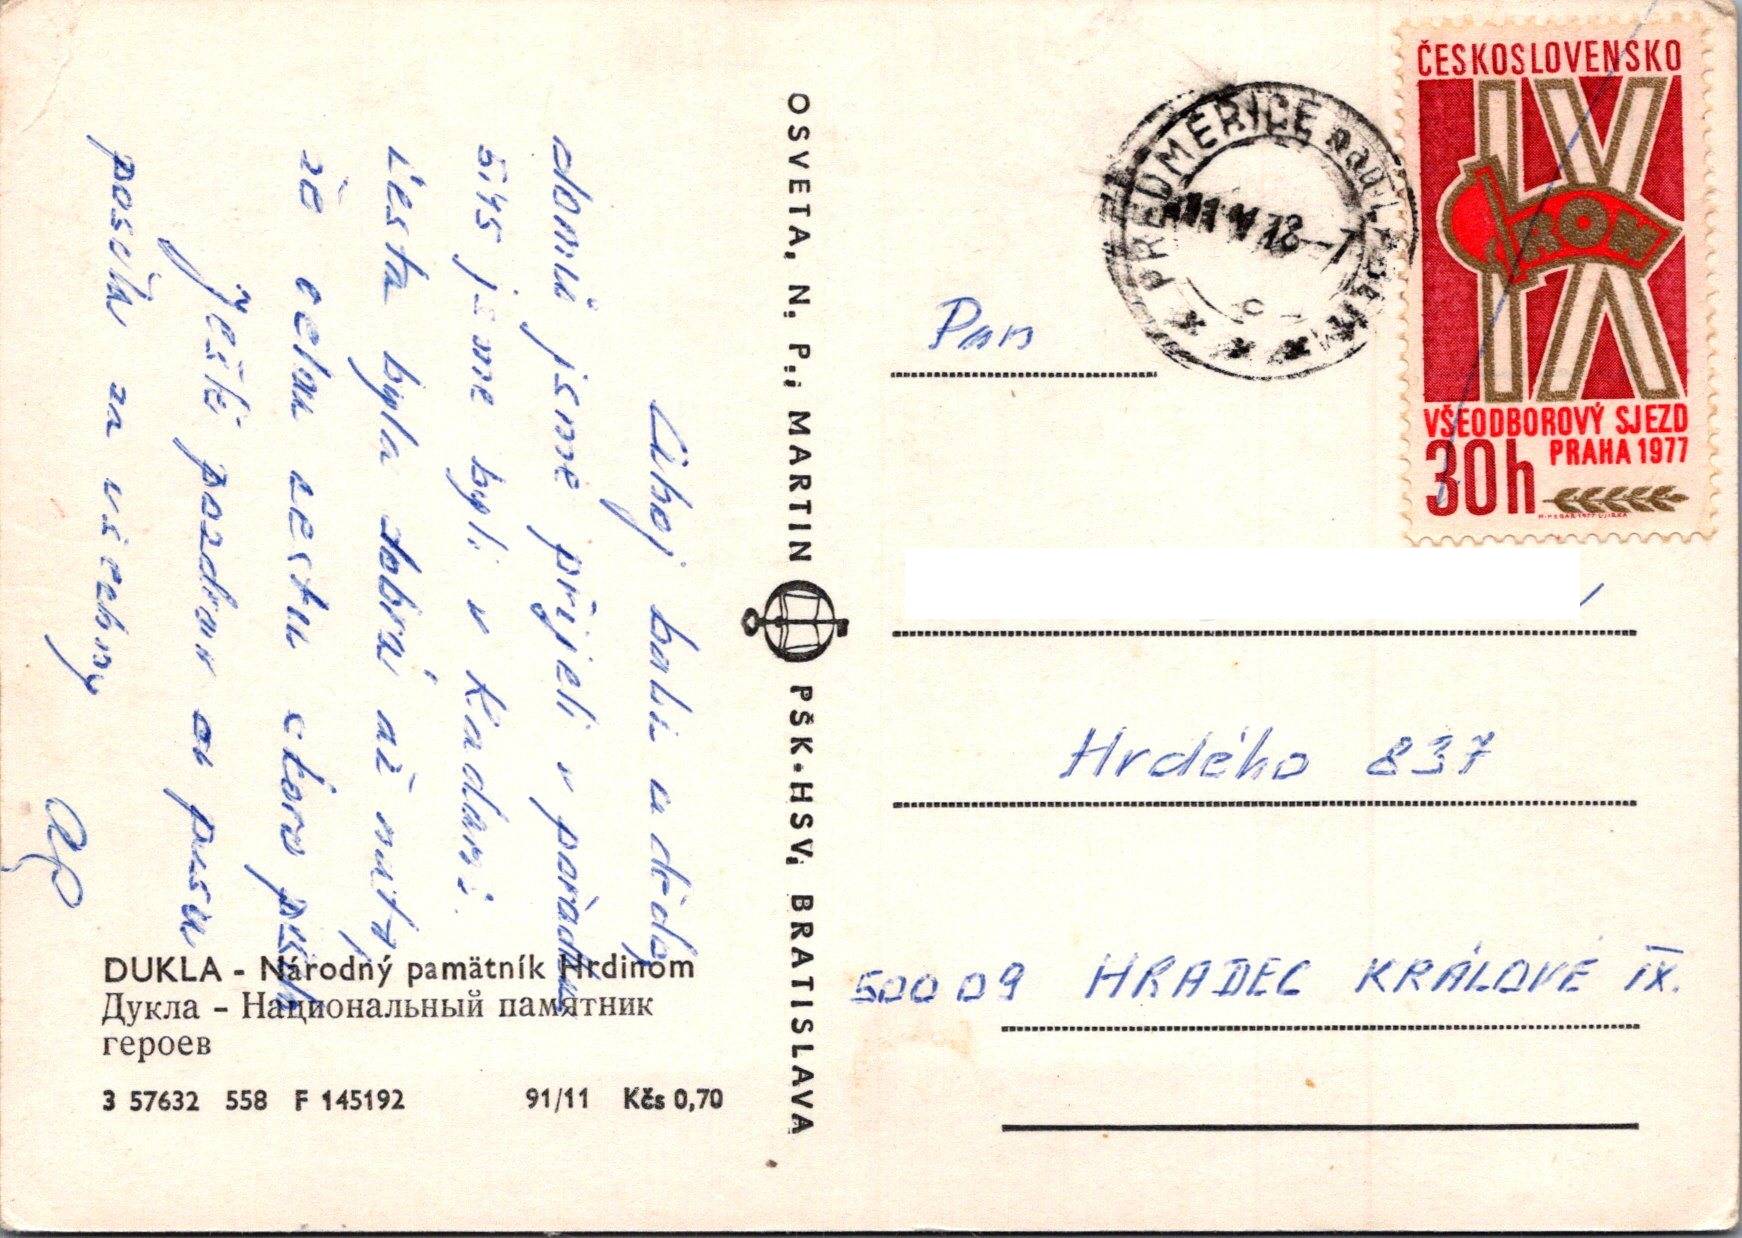 Ahoj babi a dědo,
domů jsme přijeli v pořádku
jsme byli v Kadani.
Cesta byla dobrá až na to,
že celou cestu skoro pršelo
Ještě pozdrav a pusu
posílá za všechny
DUKLA - Národný pamätník Hrdinom
Дукла - Национальный памятник
героев
3 57632 558 F 145192 91/11 Kčs 0,70
OSVETA, N. P., MARTIN PŠK-HSV, BRATISLAVA
PŘEDMĚŘICE nad LABEM
ČESKOSLOVENSKO
IX
ROH
VŠEODBOROVÝ SJEZD
PRAHA 1977
30h
Pan
Hrdého 837
500 09 HRADEC KRÁLOVÉ IX.